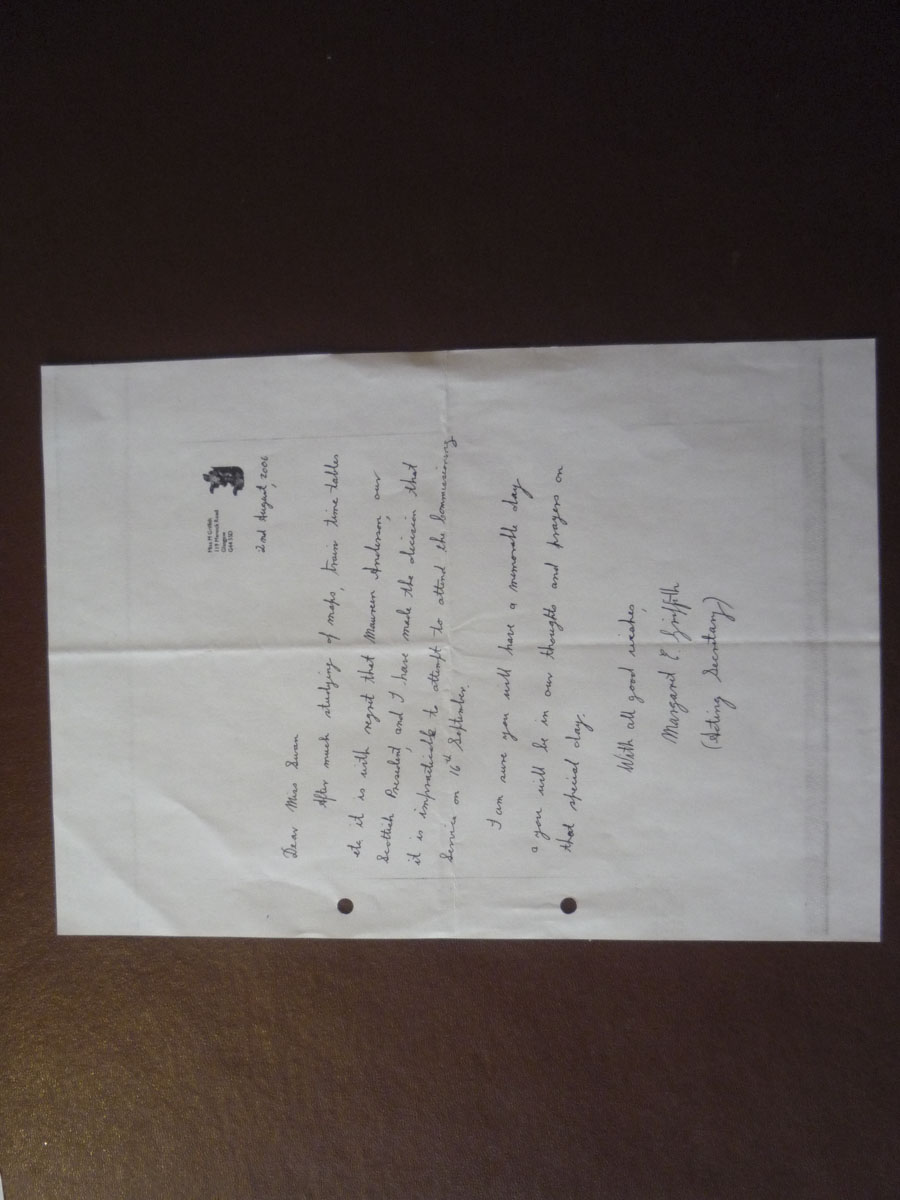 Miss M Griffith
Glasgow
2nd August, 2006
Dear Miss Swan
After much studying of maps, train time tables
etc it is with regret that Maureen Anderson, our
Scottish President, and I have made the decision that
it is impracticable to attempt to attend the Commissioning
Service on 16th September.
I am sure you will have a memorable day
& you will be in our thoughts and prayers on
that special day.
With all good wishes,
Margaret P. Griffith
(Acting Secretary)